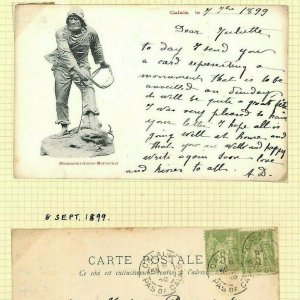 Calais, le 7 7bre 1899
Dear Juliette
to day I send you
a card representing a
monument that is to be
unveiled on Sunday
it will be quite a great fête
I was very pleased to have
your letter I hope all is
going well at home and
that you are well and happy
write again soon love
and kisses to all. A.D.
Monument
8 SEPT. 1899.
CARTE POSTALE
Ce côté est exclusivement réservé à l'adresse
CALAIS
PAS DE CALAIS